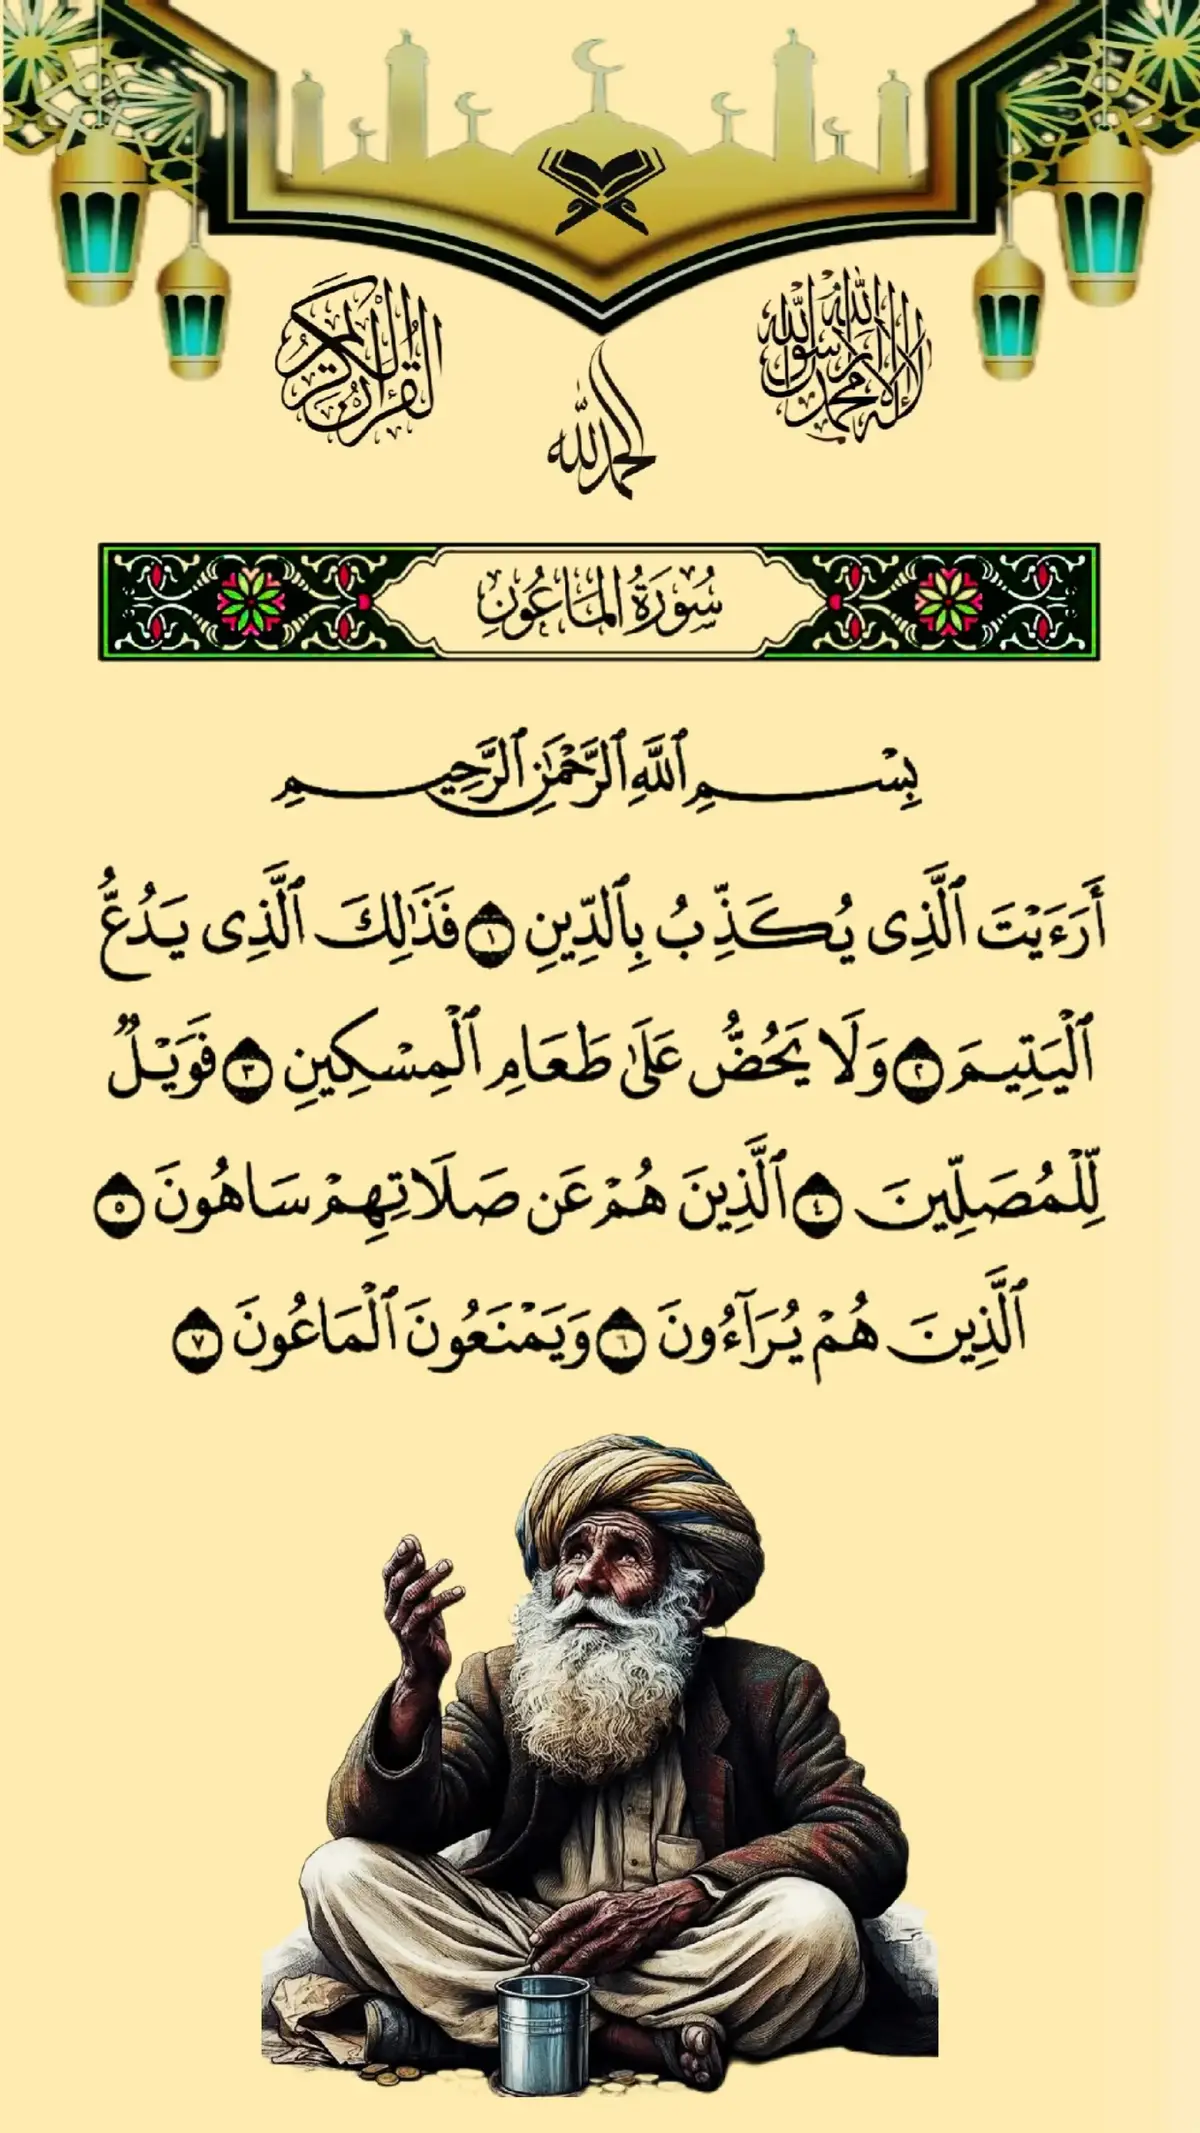 القرآن الكريم
لا إله إلا الله محمد رسول الله
الحمد لله
سُورَةُ المَاعُونِ
بِسْمِ ٱللَّهِ ٱلرَّحْمَٰنِ ٱلرَّحِيمِ
أَرَءَيْتَ ٱلَّذِى يُكَذِّبُ بِٱلدِّينِ ١ فَذَٰلِكَ ٱلَّذِى يَدُعُّ
ٱلْيَتِيمَ ٢ وَلَا يَحُضُّ عَلَىٰ طَعَامِ ٱلْمِسْكِينِ ٣ فَوَيْلٌ
لِّلْمُصَلِّينَ ٤ ٱلَّذِينَ هُمْ عَن صَلَاتِهِمْ سَاهُونَ ٥
ٱلَّذِينَ هُمْ يُرَآءُونَ ٦ وَيَمْنَعُونَ ٱلْمَاعُونَ ٧